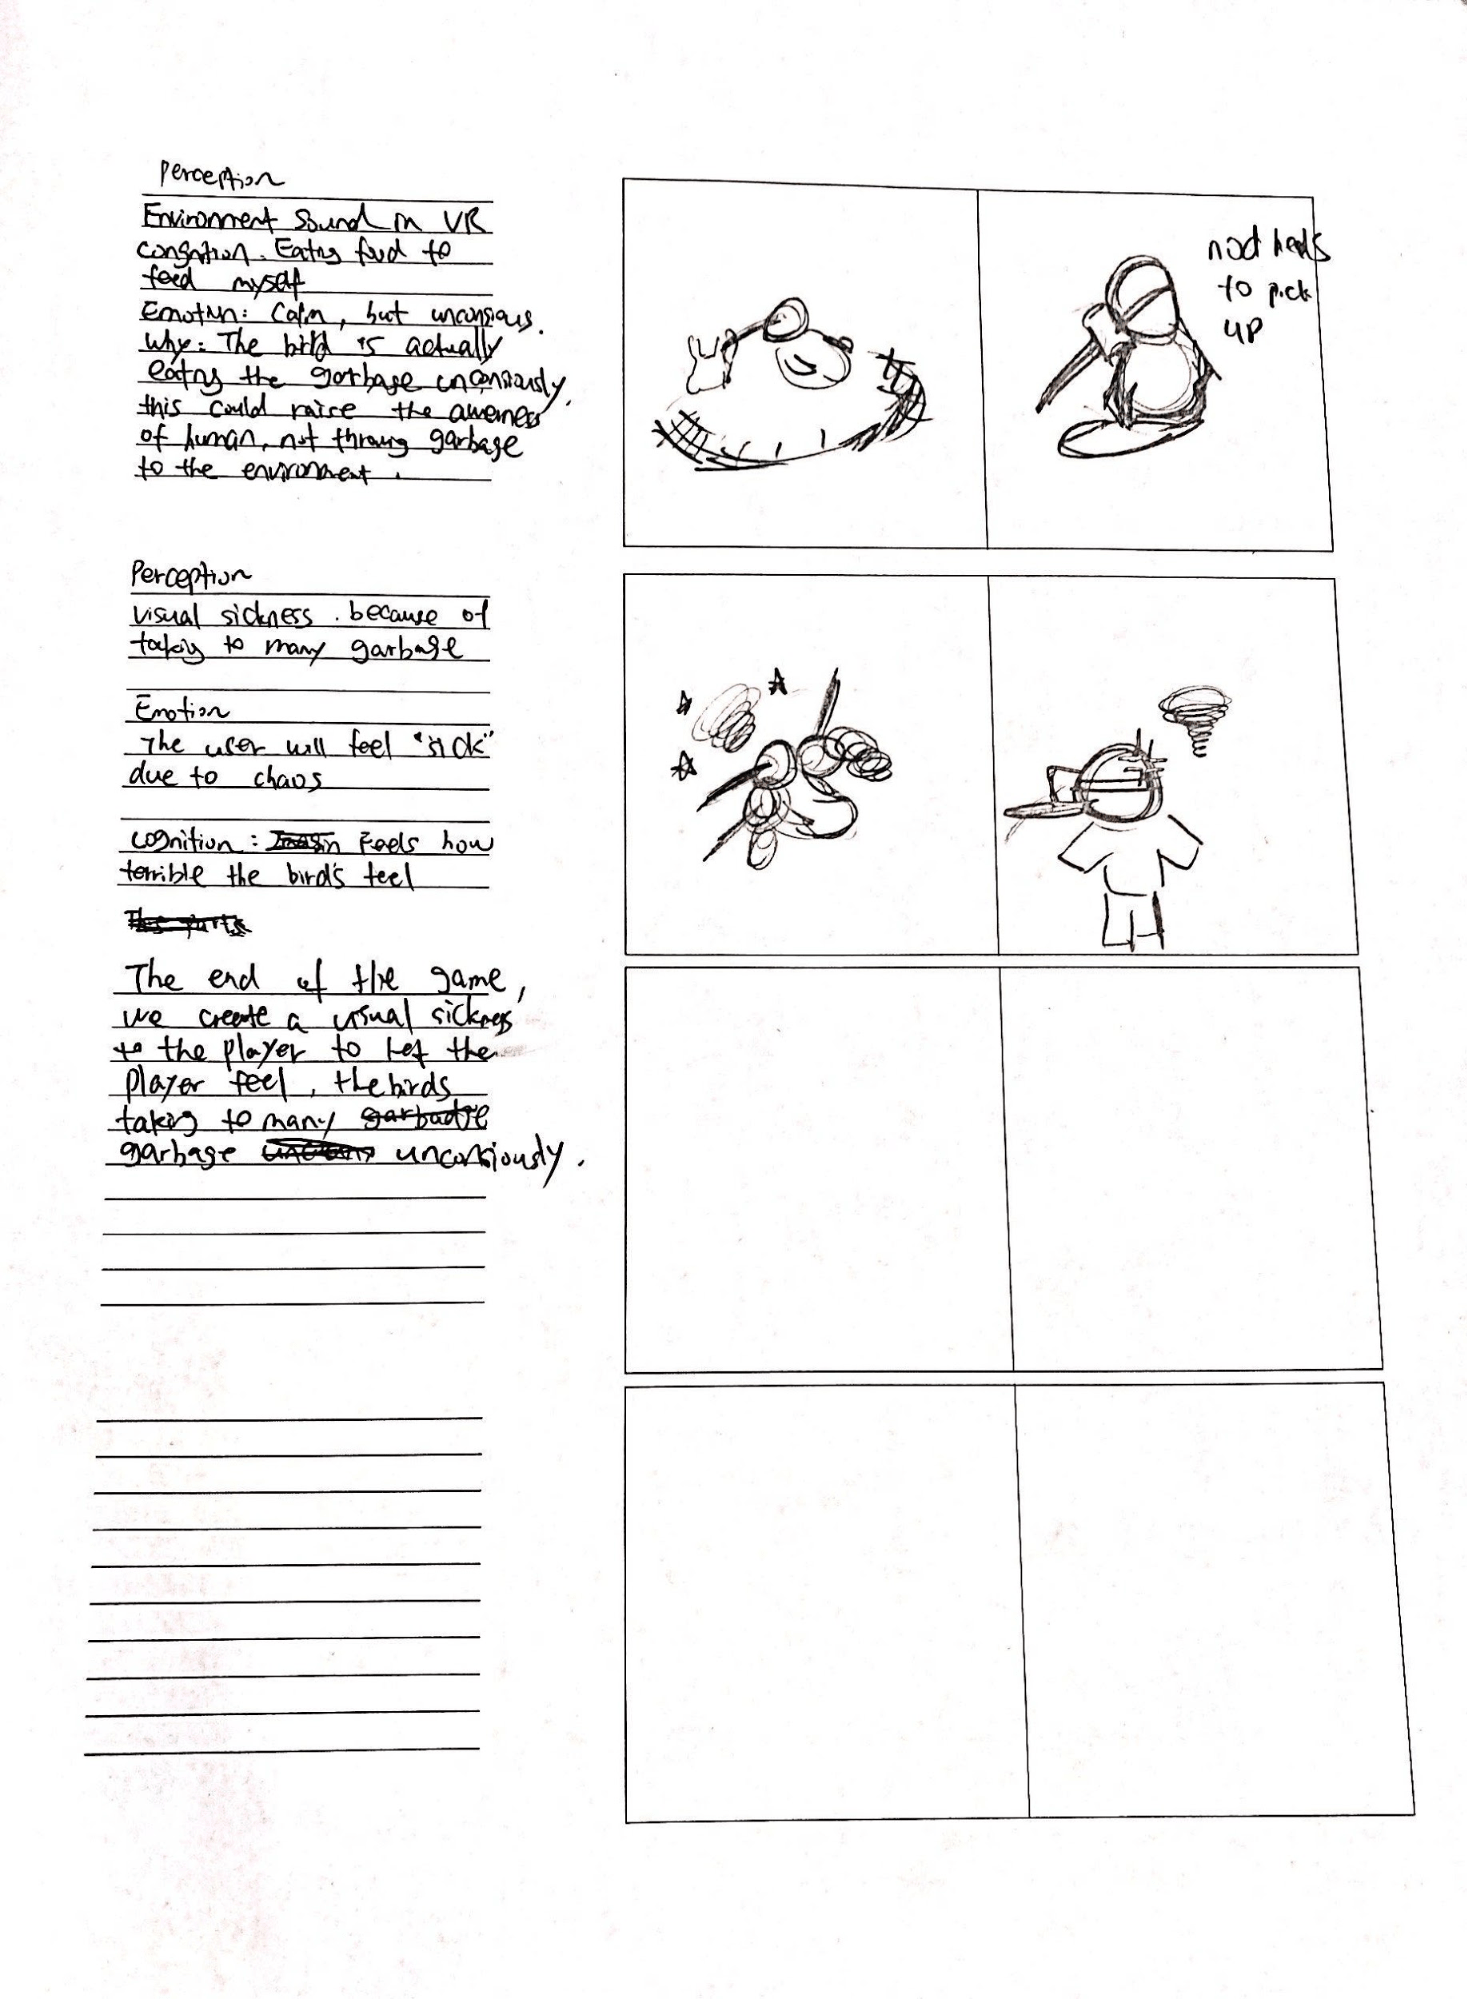 Perception
Environment sound in VR
congnition. Eating food to
feed myself
Emotion: Calm, but unconsious.
Why: The bird is actually
eating the garbage unconsiously.
this could raise the awerness
of human, not throwing garbage
to the environment.
nod heads
to pick
up
Perception
visual sickness. because of
taking to many garbage
Emotion
The user will feel "sick"
due to chaos
cognition: Feels how
terrible the bird's feel
The end of the game,
we create a visual sickness
to the player to let the
player feel, the birds
taking to many garbadge
garbage unconsiously.